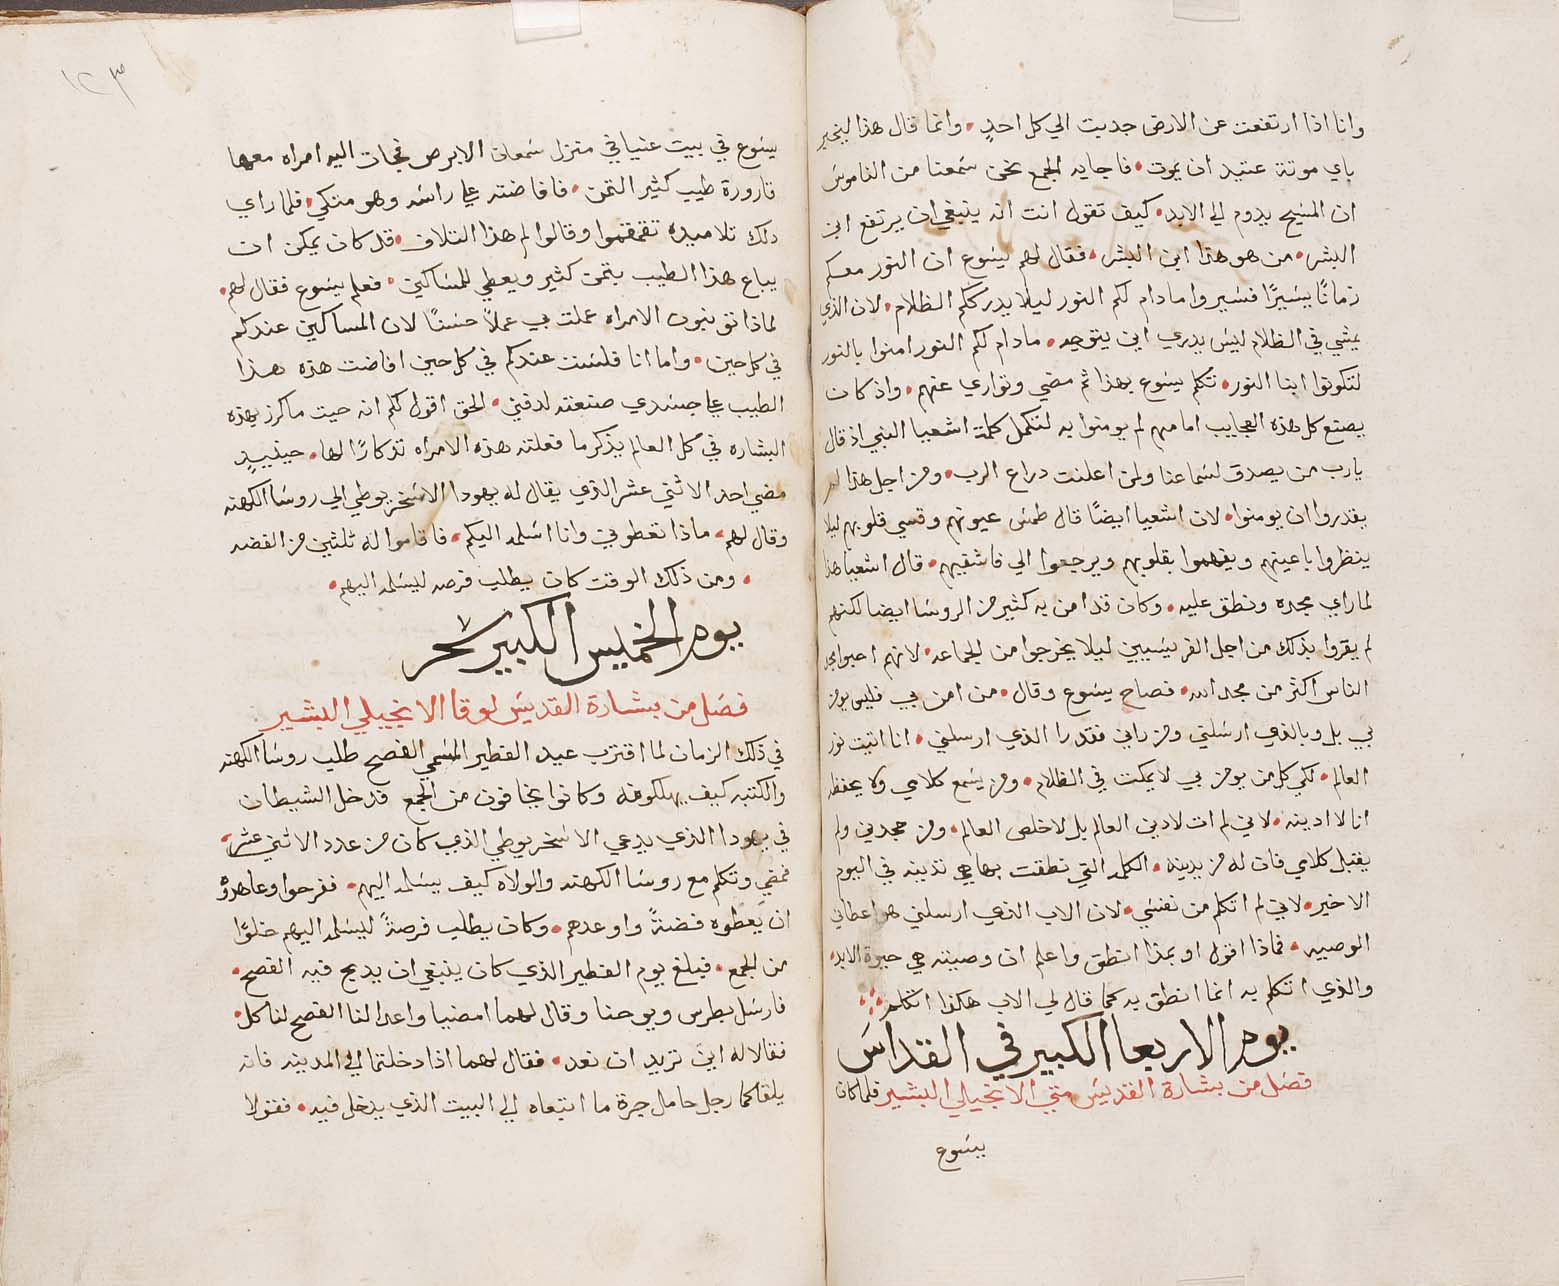 وانا اذا ارتفعت عن الارض جدبت الي كل احدٍ. وانما قال هذا ليخبر
باي موتة عتيد ان يموت. فاجابه الجمع نحن سمعنا من الناموس
ان المسيح يدوم الي الابد. كيف تقول انت انه ينبغي ان يرتفع ابن
البشر. من هو هذا ابن البشر. فقال لهم يسوع ان النور معكم
زمانًا يسيرًا فسيروا مادام لكم النور ليلا يدرككم الظلام. لان الذي
يمشي في الظلام ليس يدري اين يتوجه. مادام لكم النور امنوا بالنور
لتكونوا ابنا النور. تكلم يسوع بهذا ثم مضي وتواري عنهم. واذ كان
يصنع كل هذه العجايب امامهم لم يومنوا به لتكمل كلمة اشعيا النبي اذ قال
يارب من يصدق لسماعنا ولمن اعلنت دراع الرب. ومن اجل هذا لم
يقدروا ان يومنوا. لان اشعيا ايضًا قال طمس عيونهم وقسي قلوبهم ليلا
ينظروا باعينهم ويفهموا بقلوبهم ويرجعوا الي فاشفيهم. قال اشعيا هذا
لما راي مجده ونطق عليه. وكان قد امن به كثير من الروسا ايضا لكنهم
لم يقروا بذلك من اجل الفريسيين ليلا يخرجوا من الجماعه. لانهم احبوا مجد
الناس اكثر من مجد الله. فصاح يسوع وقال. من امن بي فليس يومن
بي بل وبالذي ارسلني ومن راني فقد را الذي ارسلني. انا اتيت نور
العالم. لكي كل من يومن بي لا يمكت في الظلام. ومن يسمع كلامي ولا يحفظه
انا لا ادينه. لاني لم ات لادين العالم بل لاخلص العالم. ومن جحدني ولم
يقبل كلامي فان له من يدينه. الكلمة التي نطقت بها هي تدينه في اليوم
الاخير. لاني لم اتكلم من نفسي. لان الاب الذي ارسلني هو اعطاني
الوصيه. فماذا اقول او بمذا انطق واعلم ان وصيته هي حيوة الابد.
والذي اتكلم به انما انطق به كما قال لي الاب هكذا اتكلم
يوم الاربعا الكبير في القداس
فصل من بشارة القديس متي الانجيلي البشير فلما كان
يسوع
١٢٣
يسوع في بيت عنيا في منزل سمعان الابرص فجات اليه امراه معها
قارورة طيب كثير التمن. فافاضته علي راسه وهو متكي. فلما راي
دلك تلاميده تقمقموا وقالوا لم هذا التلاف. قد كان يمكن ان
يباع هذا الطيب بتمن كثير ويعطي للمساكين. فعلم يسوع فقال لهم.
لماذا تونبون الامراه عملت بي عملًا حسنًا لان المساكين عندكم
في كل حين. واما انا فلست عندكم في كل حين افاضت هذه هذا
الطيب علي جسدي صنعته لدفني. الحق اقول لكم انه حيت ما كرز بهذه
البشاره في كل العالم يذكر ما فعلته هذه الامراه تذكارًا لها. حينيذٍ
مضي احد الاثني عشر الذي يقال له يهودا الاسخريوطي الي روسا الكهنه
وقال لهم. ماذا تعطوني وانا اسلمه اليكم. فاقاموا له ثلثين من الفضه
. ومن ذلك الوقت كان يطلب فرصه ليسلمه اليهم.
يوم الخميس الكبير سحر
فصل من بشارة القديس لوقا الانجيلي البشير
في ذلك الزمان لما اقترب عيد الفطير المسمي الفصح طلب روسا الكهنه
والكتبه كيف يهلكونه وكانوا يخافون من الجمع فدخل الشيطان
في يهودا الذي يدعي الاسخريوطي الذي كان من عدد الاثني عشر.
فمضي وتكلم مع روسا الكهنه والولاه كيف يسلمه اليهم. ففرحوا وعاهدوْ
ان يعطوه فضةً واوعدهم. وكان يطلب فرصةً ليسلمه اليهم خلوًا
من الجمع. فبلغ يوم الفطير الذي كان ينبغي ان يدبح فيه الفصح.
فارسل بطرس ويوحنا وقال لهما امضيا واعدا لنا الفصح لناكل.
فقالا له اين تريد ان نعد. فقال لهما اذا دخلتما الي المدينه فانه
يلقاكما رجل حامل جرة ما اتبعاه الي البيت الذي يدخل فيه. فقولا